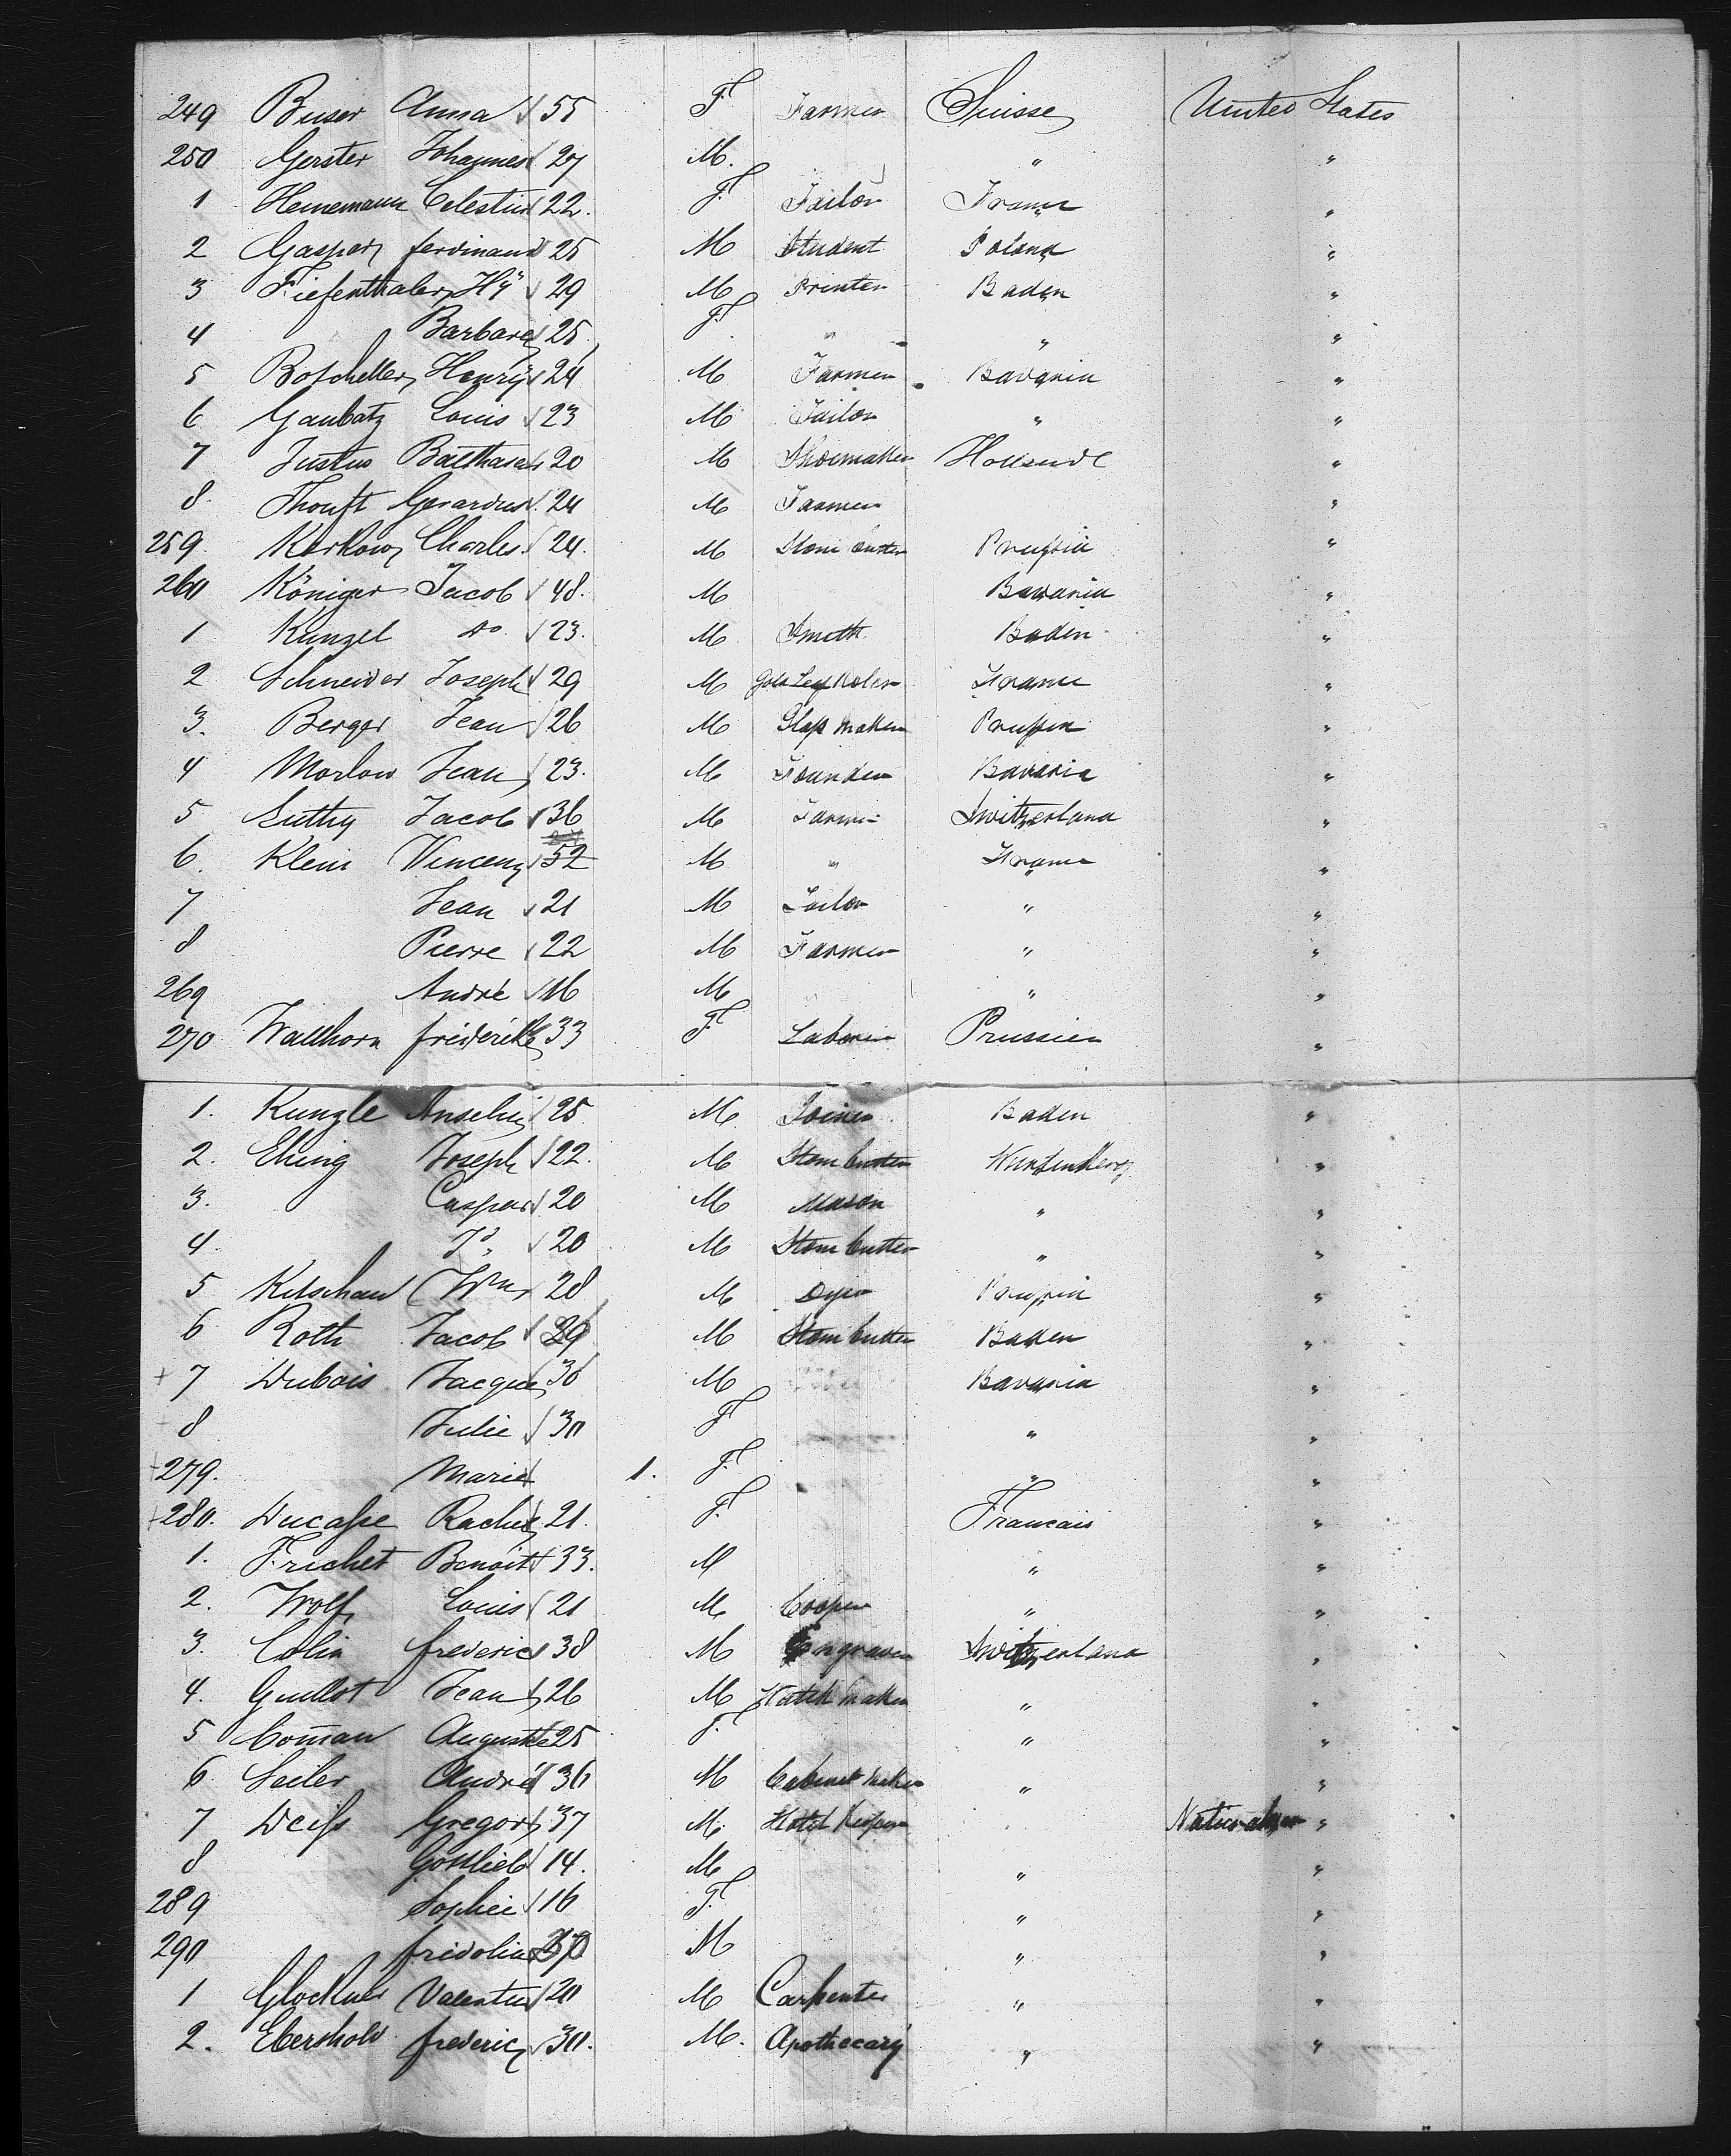 249 Buser Anna √ 55 F Farmer Suisse United States
250 Gerster Johannes √ 27 M. " "
1 Heinemann Celestin √ 22. F. Tailor France "
2 Gasper ferdinand √ 25 M Student Poland "
3 Tiefenthaler Hÿ √ 29 M Printer Baden "
4 Barbara √ 25 F. " " "
5 Henrÿ √ 24 M Farmer Bavaria "
6 Gaubatz Louis √ 23 M Tailor " "
7 Justus Balthasar √ 20 M Shoemaker "
8. Gerardus √ 24 M Farmer "
259. Karkow Charles. √ 24. M Stone cutter Prussia "
260 Königer Jacob √ 48. M Bavaria "
1 Kunzel do √ 23. M Smith Baden "
2 Schneider Joseph √ 29 M France "
3. Berger Jean √ 26 M Glass maker Prussia "
4 Morlow Jean √ 23. M Founder Bavaria "
5 Luthy Jacob √ 36 M Farmer Switzerland "
6. Klein Vincenz √ 52 M " France "
7 Jean √ 21 M Tailor " "
8 Pierre √ 22 M Farmer " "
269 André √ 16 M " "
270 Wallhorn friderike 33 F Laborer Prussien "
1. Kunzle Anselm √ 25 M Joiner Baden "
2. Ehing Joseph √ 22. M Stone Cutter Wurtemberg "
3. Caspar √ 20 M Mason " "
4. Jd. √ 20 M Stone Cutter " "
5 Kitschau Wm √ 28 M Dyer Prussia "
6 Roth Jacob √ 29 M Stone Cutter Baden "
+ 7 Dubois Jacques 36 M Bavaria "
+ 8 Julie √ 30 F " "
+ 279. Marie √ 1. F. " "
+ 280. Ducasse Rachel 21. F. Francais "
1. Frichet Benoit √ 33. M " "
2. Wolf Louis √ 21 M. Cooper " "
3. Colin frederic √ 38 M Engraver Switzerland "
4. Guillot Jean √ 26 M Watch maker " "
5 Coman Auguste 25 F. " "
6. Seiler André √ 36 M Cabinet maker " "
7 Weiss Gregor √ 37 M. Hotel Keeper "
8 Gottlieb √ 14. M. " "
289 Sophie √ 16 F. " "
290 fridolin M " "
1 Glockner Valentin √ 20 M Carpenter " "
2. Ebershold frederic √ 30. M. Apothecarÿ " "